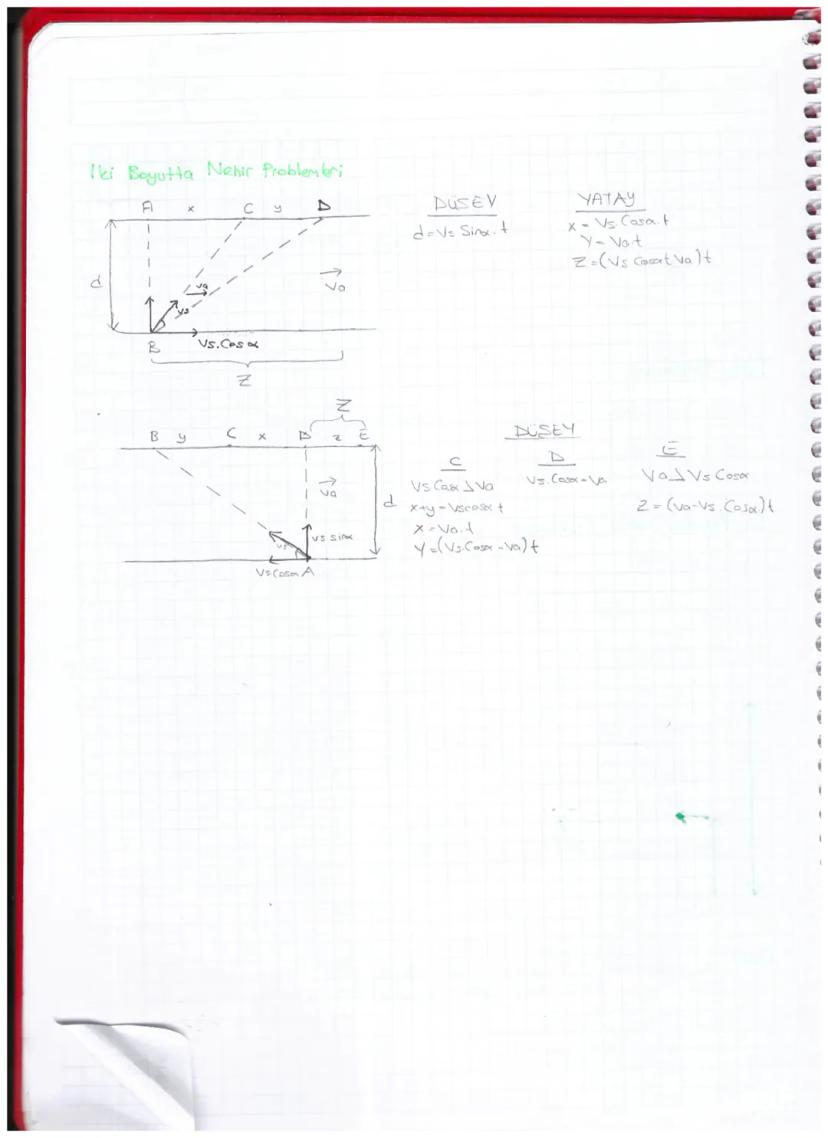 İki Boyutta Nehir Problemleri
A x C y D
d
Va
Vs
Va
B Vs.Cosα
Z
DÜŞEY
d=Vs Sinα.t
YATAY
x = Vs.Cosα.t
Y = Va.t
Z=(Vs Cosα+Va)t
Z
B y C x D z E
Va
d
Vs
Vs sinα
VsCosα A
DÜŞEY
C
Vs Cosα > Va
x+y = Vscosα t
x = Va.t
Y=(Vs.Cosα -Va)t
D
Vs.Cosα=Va
E
Va > Vs Cosα
Z = (Va-Vs.Cosα)t